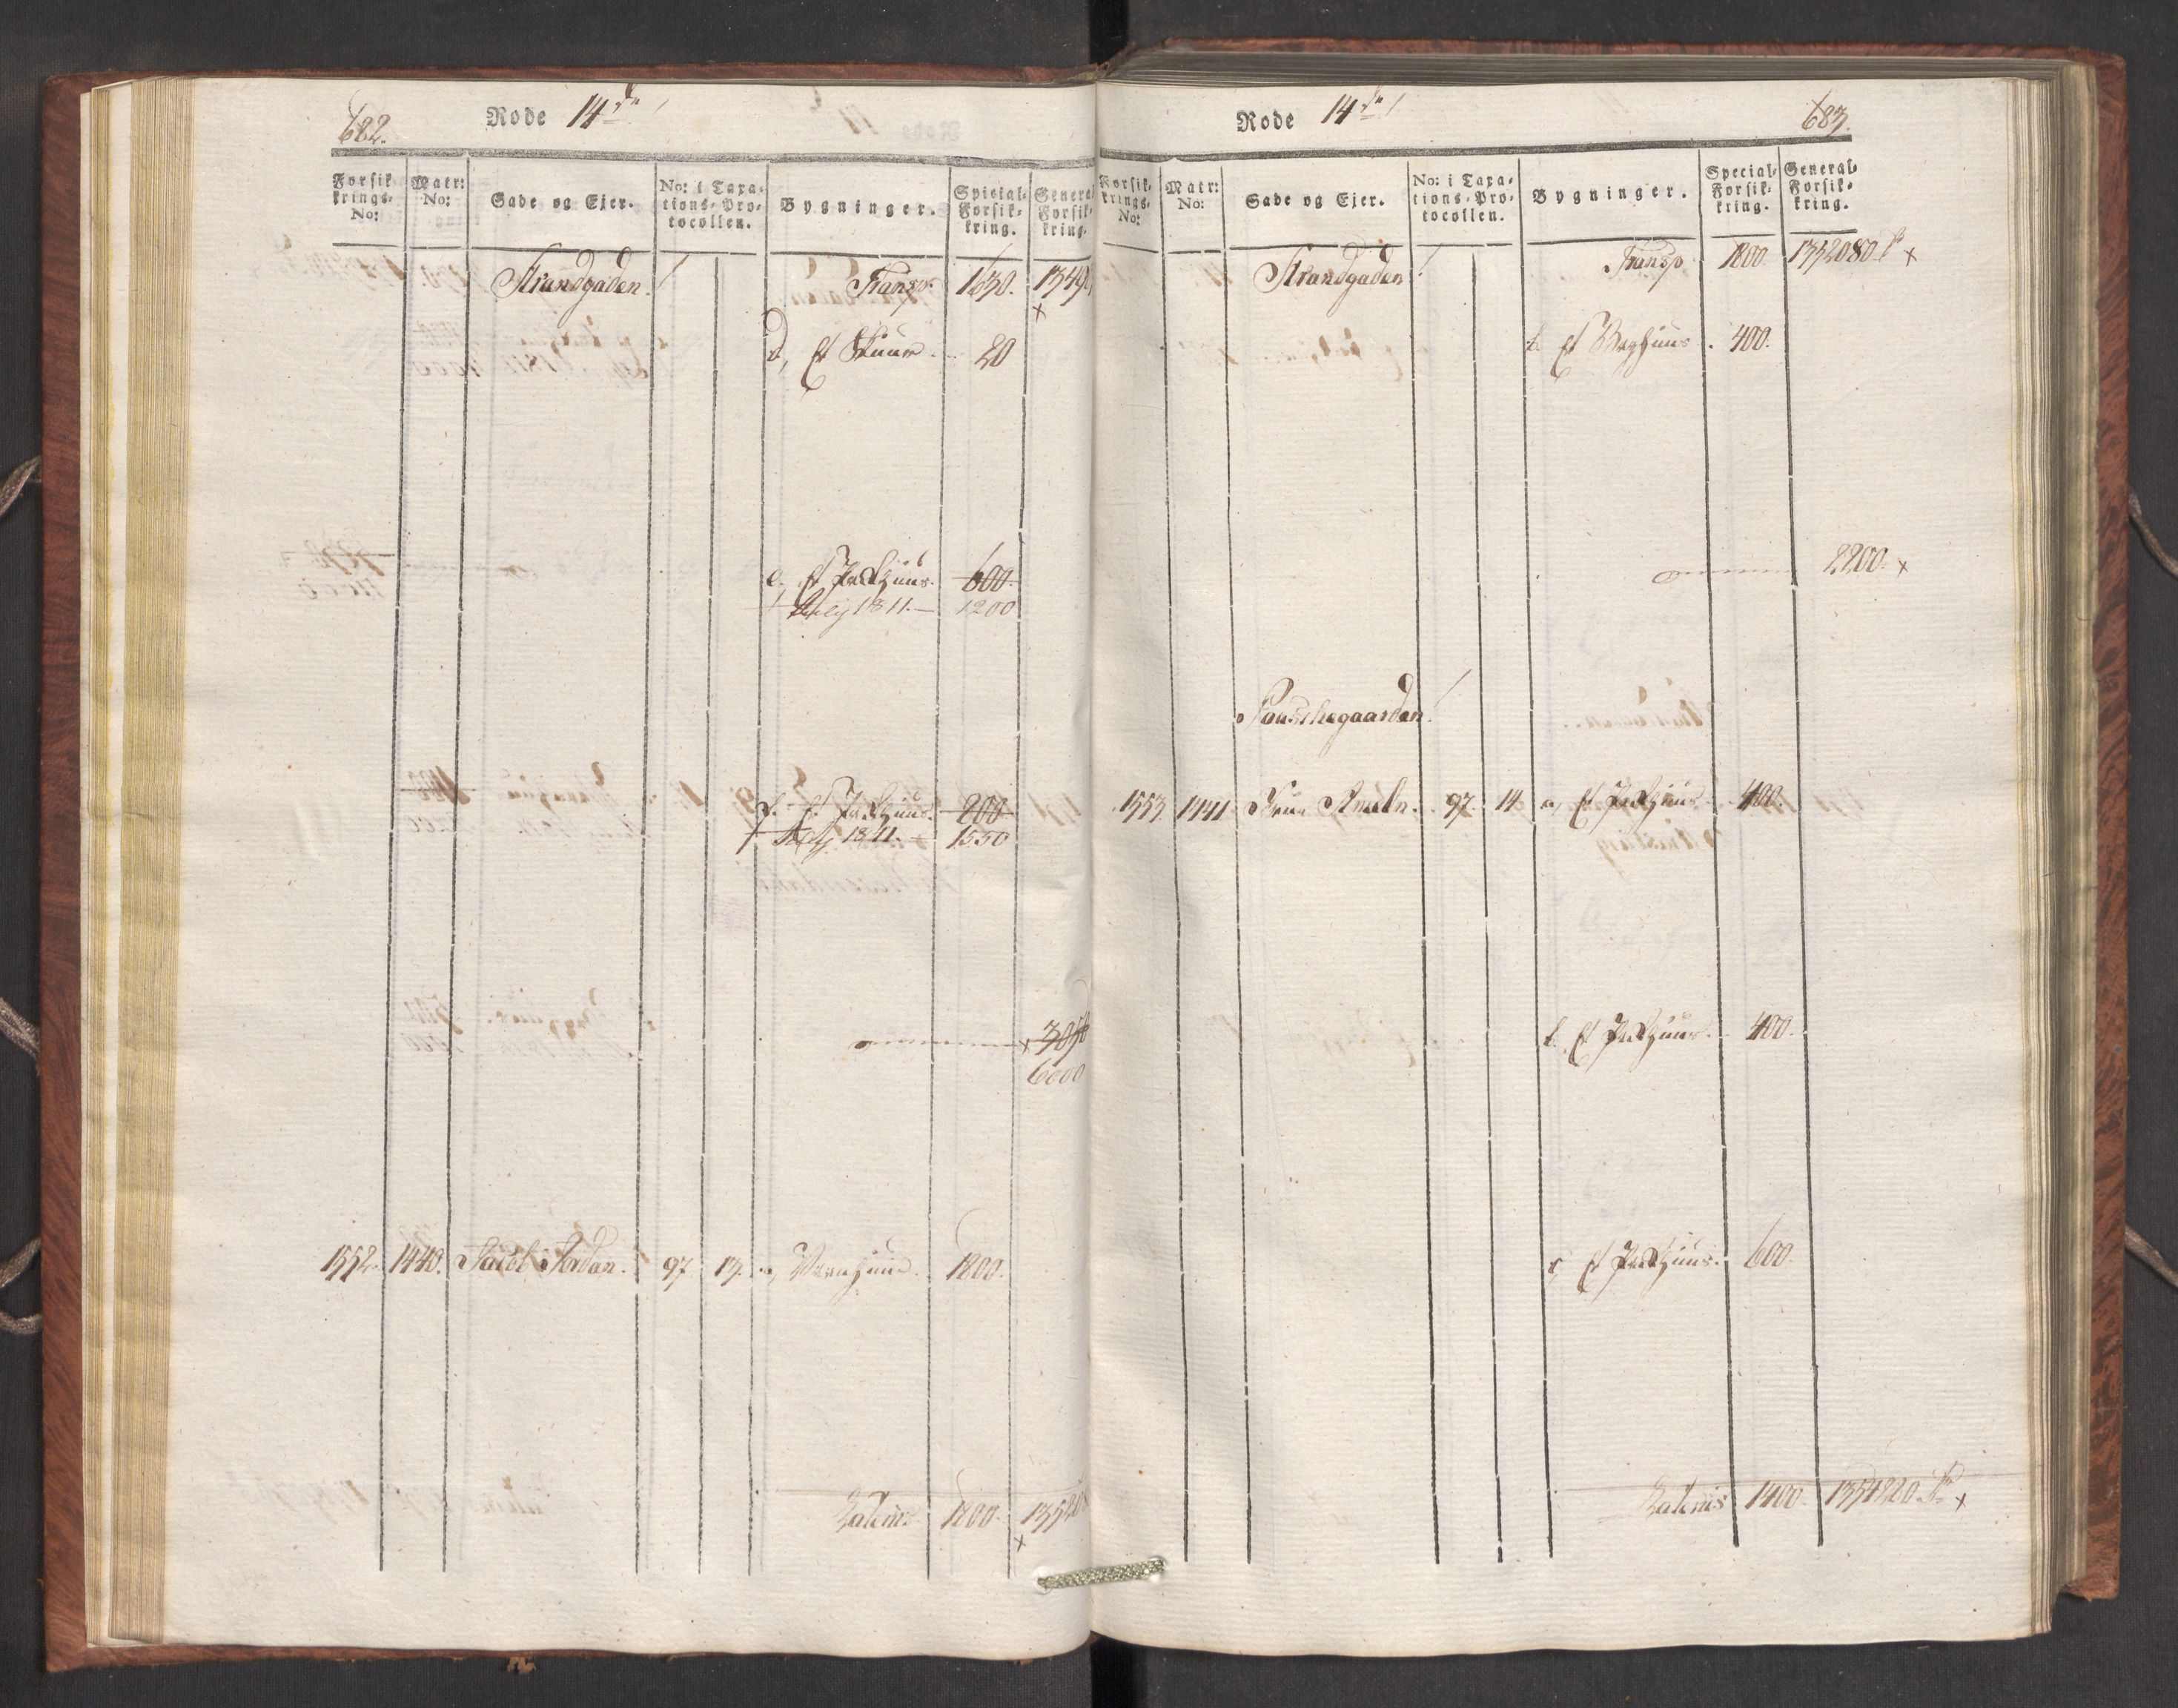 682.
Rode 14de
Forsikrings- No:
Matr: No:
Gade og Eier.
No: i Taxations-Protocollen.
Bygninger.
Special Forsikring.
General Forsikring.
Strandgaden. Transp. 1630. 1349
d, Et Skuur. 20
e. Et Pakhuus. 600.
1 July 1811. 1200
f. Et Pakhuus. 200
1 July 1811. 1550
3050
6000
1552. 1440. Jacob Jordan. 97 13. a, Vaanhuus. 1800.
Lateris 1800. 13520
683.
Rode 14de
Forsikrings- No:
Matr: No:
Gade og Eier.
No: i Taxations-Protocollen.
Bygninger.
Special Forsikring.
General Forsikring.
Strandgaden Transp 1800. 1352080
b. Et Bryghuus 400.
2200.
1553. 1441 97. 14 a, Et Pakhuus 400.
b. Et Pakhuus. 400.
c, Et Pakhuus. 600.
Lateris 1400. 1354280